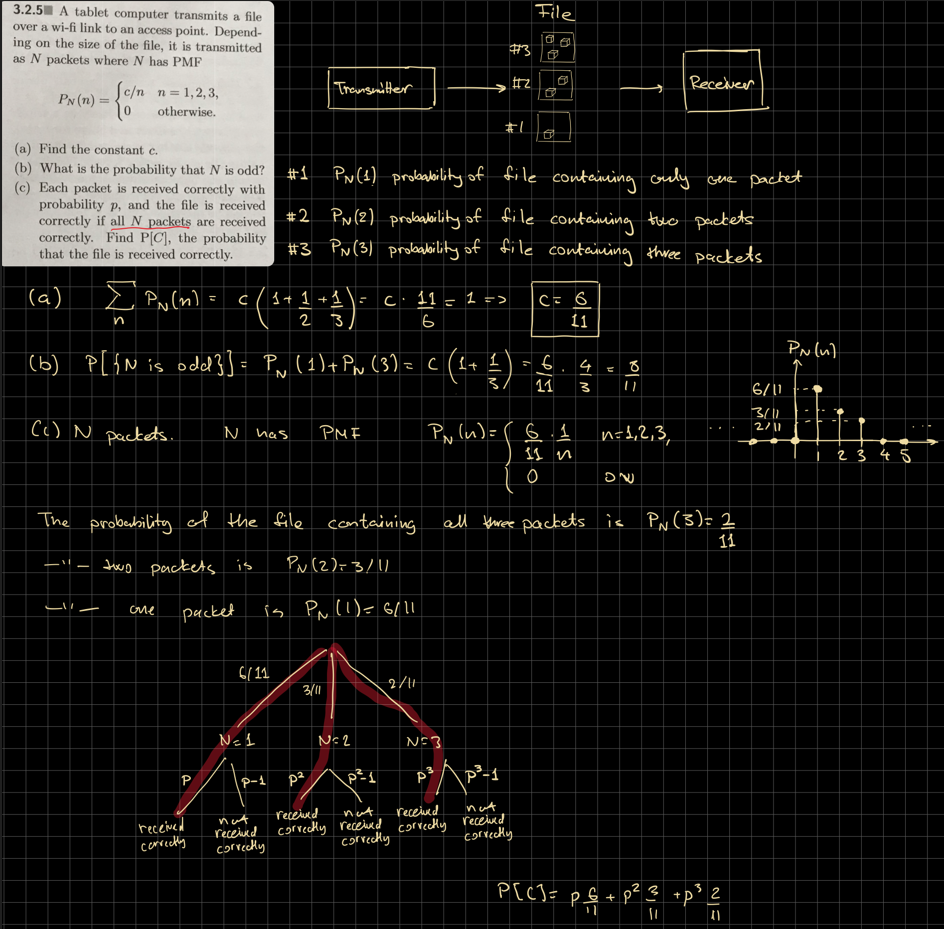 3.2.5 A tablet computer transmits a file
over a wi-fi link to an access point. Depend-
ing on the size of the file, it is transmitted
as N packets where N has PMF
P_N(n) = { c/n n = 1, 2, 3,
0 otherwise.
(a) Find the constant c.
(b) What is the probability that N is odd?
(c) Each packet is received correctly with
probability p, and the file is received
correctly if all N packets are received
correctly. Find P[C], the probability
that the file is received correctly.
File
#3
Transmitter
#2
Receiver
#1
#1 P_N(1) probability of file containing only one packet
#2 P_N(2) probability of file containing two packets
#3 P_N(3) probability of file containing three packets
(a) ∑_n P_N(n) = c (1 + 1/2 + 1/3) = c · 11/6 = 1 => c = 6/11
(b) P[{N is odd}] = P_N(1) + P_N(3) = c (1 + 1/3) = 6/11 · 4/3 = 8/11
P_N(n)
6/11
3/11
2/11
... ...
1 2 3 4 5
(c) N packets. N has PMF P_N(n) = { 6/11 · 1/n n=1,2,3,
0 ow
The probability of the file containing all three packets is P_N(3) = 2/11
—"— two packets is P_N(2) = 3/11
—"— one packet is P_N(1) = 6/11
6/11 3/11 2/11
N=1 N=2 N=3
p p-1 p² p²-1 p³ p³-1
received correctly
not received correctly
received correctly
not received correctly
received correctly
not received correctly
P[C] = p 6/11 + p² 3/11 + p³ 2/11